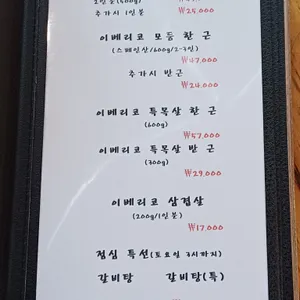 2인분(500g)
추가시 1인분
₩25,000
이베리코 모듬 한 근
(스페인산/600g/2-3인)
₩47,000
추가시 반근
₩24,000
이베리코 특목살 한 근
(600g)
₩57,000
이베리코 특목살 반 근
(300g)
₩29,000
이베리코 삼겹살
(200g/1인분)
₩17,000
점심 특선(토요일 3시까지)
갈비탕 갈비탕(특)